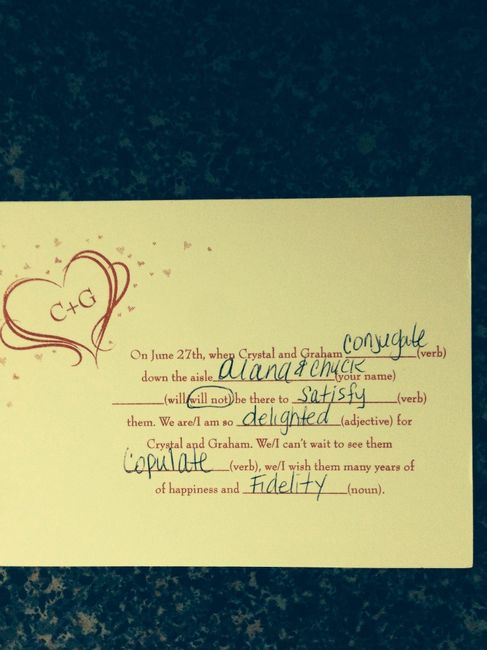 C+G
On June 27th, when Crystal and Graham conjugate (verb)
down the aisle alana & chuck (your name)
(will/will not) be there to satisfy (verb)
them. We are/I am so delighted (adjective) for
Crystal and Graham. We/I can't wait to see them
Copulate (verb), we/I wish them many years of
of happiness and Fidelity (noun).